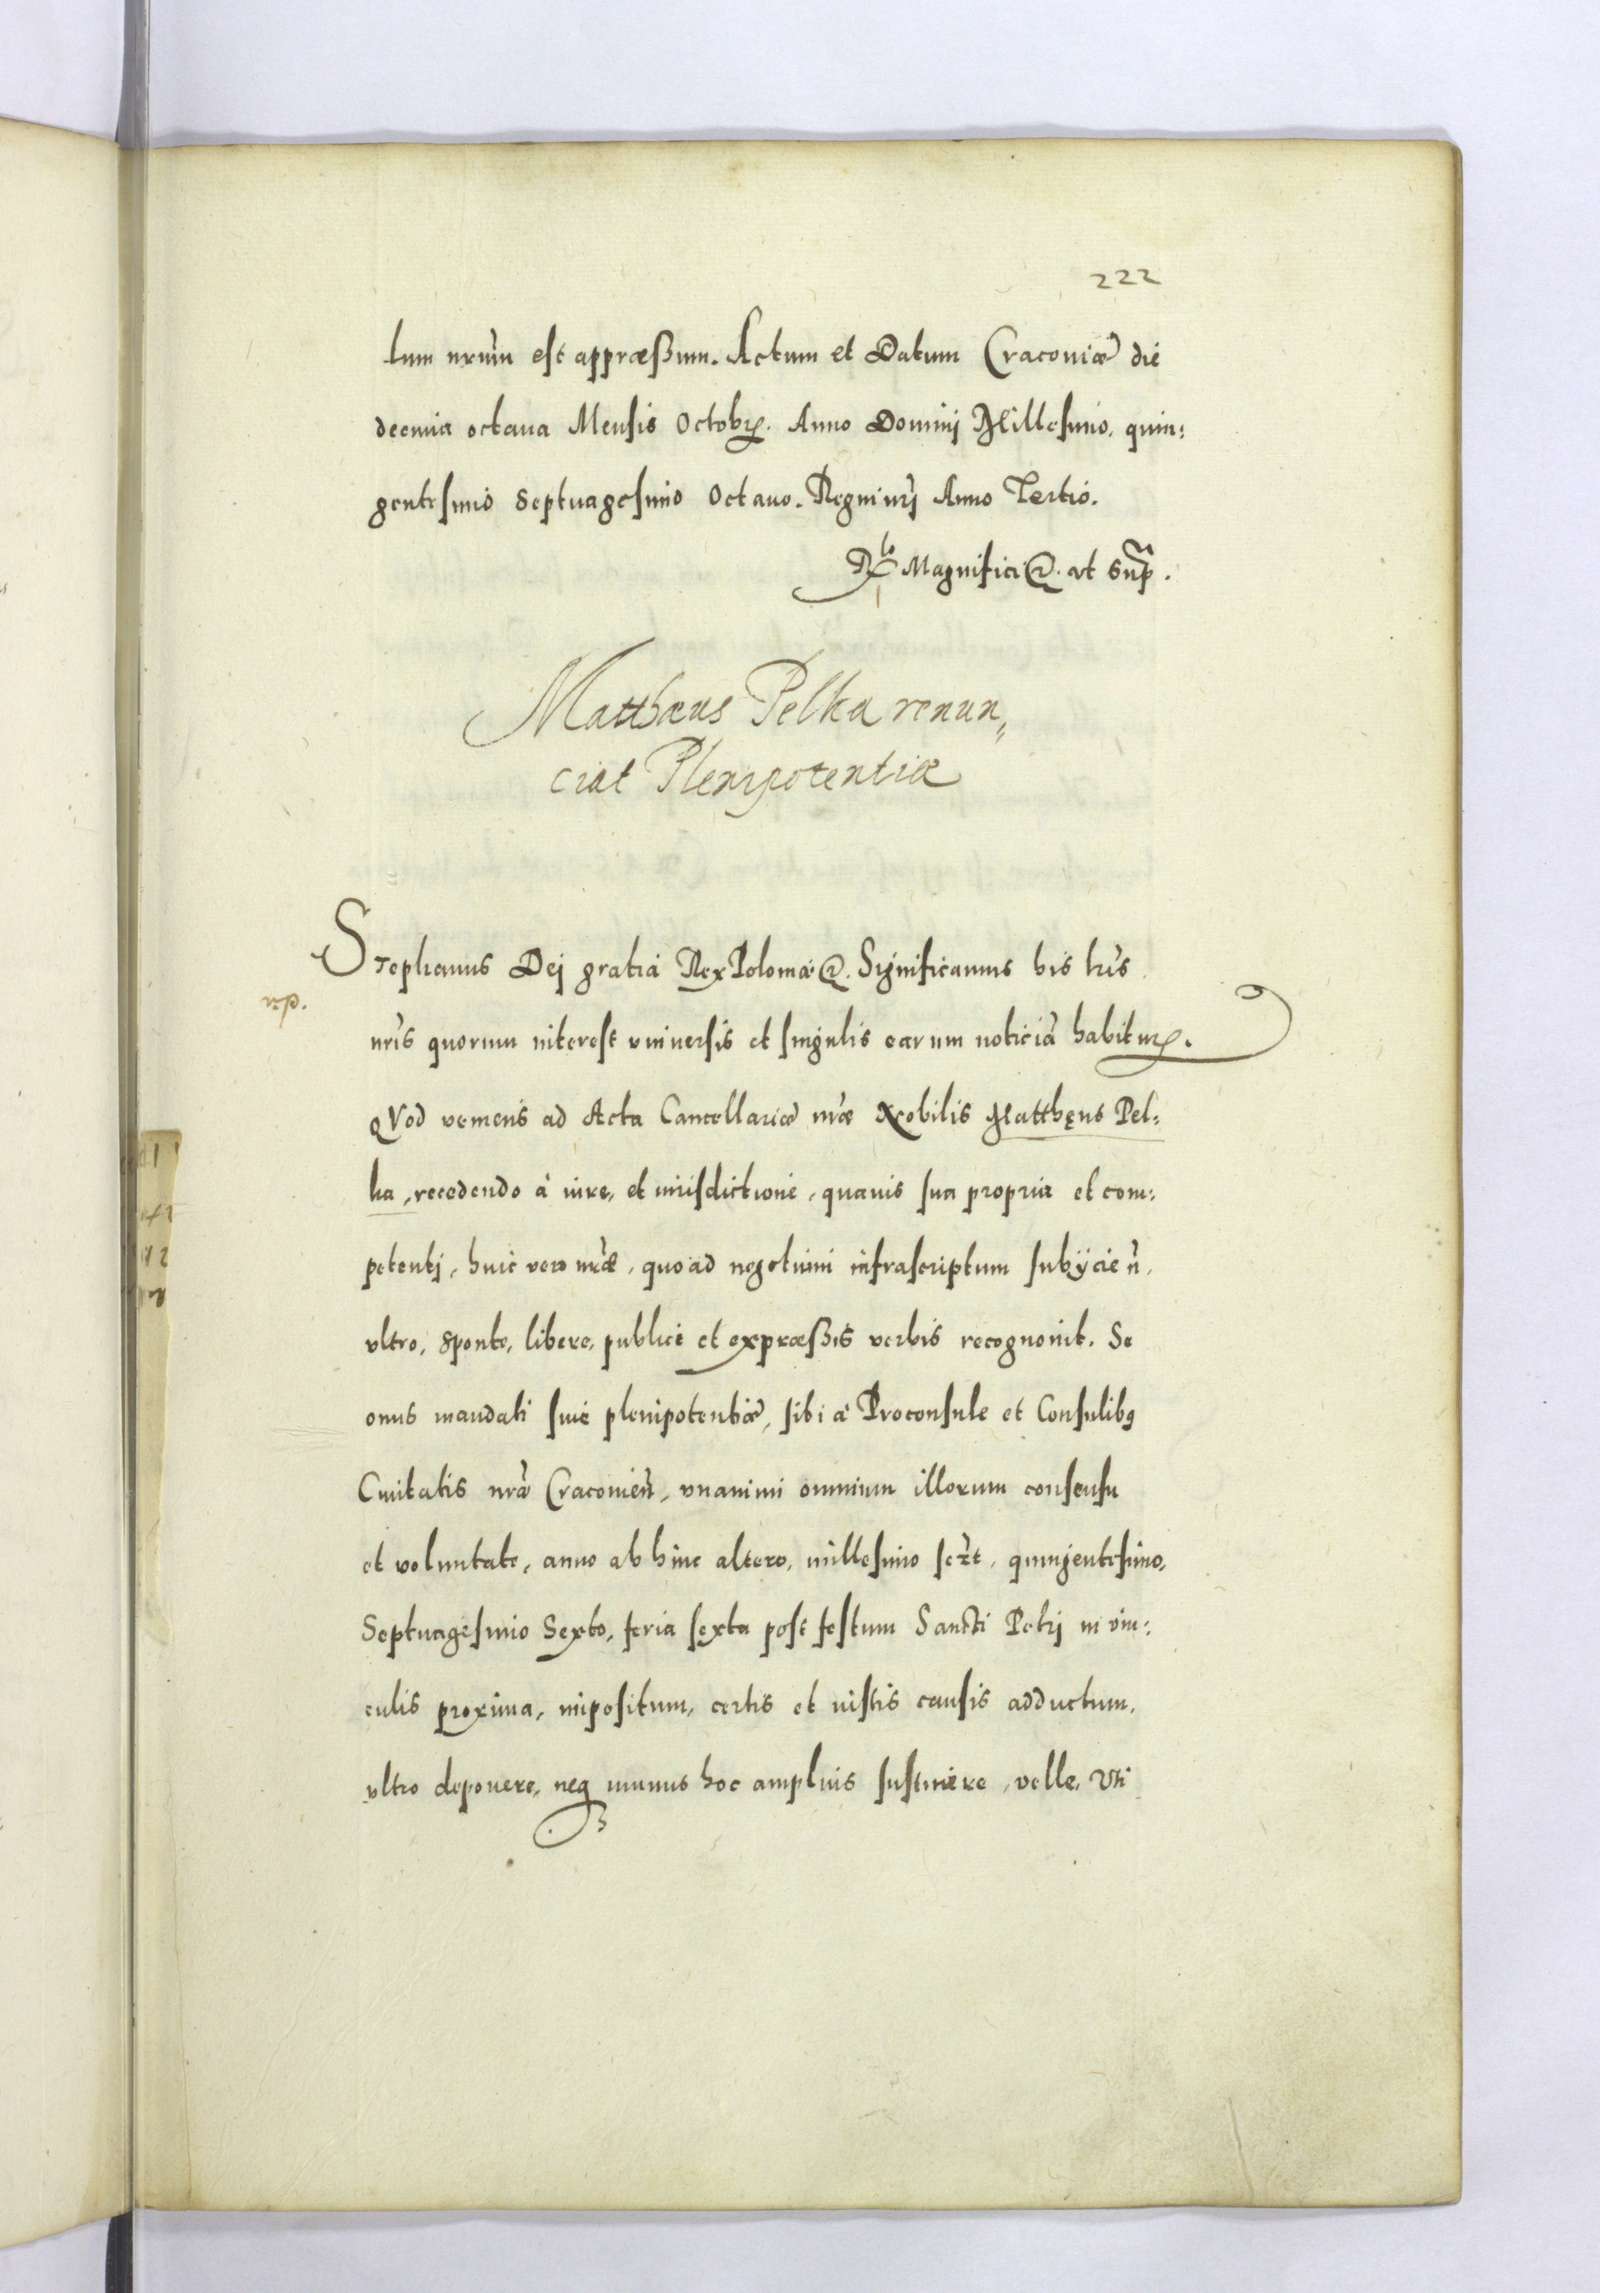 222
lum nrũm est appræßum. Actum et Datum Cracoviæ die
decima octava Mensis Octobr. Anno Dominj Millesimo, quin:
gentesimo Septuagesimo Octavo. Regni nrj Anno Tertio.
Rlo Magnifici &. ut Sup.
Matthæus Pelka renun„
ciat Plenipotentiæ
Stephanus Dej gratia Rex Poloniæ &. Significamus his lrĩs
np.
nrĩs quorum interest universis et singulis earum noticiã habitur.
QVod veniens ad Acta Cancellariæ nræ Nobilis Matthęus Pel:
ka, recedendo à iure, et iurisdictione, quavis sua propria et com:
petentj, huic vero nræ, quo ad negotium infrascriptum subÿcieñ,
ultro, sponte, libere, publicè et expræßis verbis recognovit. Se
onus mandati sive plenipotentiæ, sibi à Proconsule et Consulibq
Civitatis nræ Cracovieñ, unanimi omnium illorum consensu
et voluntate, anno ab hinc altero, millesimo scz̃t, quingentesimo,
Septuagesimo Sexto, feria sexta post festum Sancti Petrj in vin:
culis proxima, impositum, certis et iustis causis adductum,
ultro deponere, neq munus hoc amplius sustinere, velle, Uti